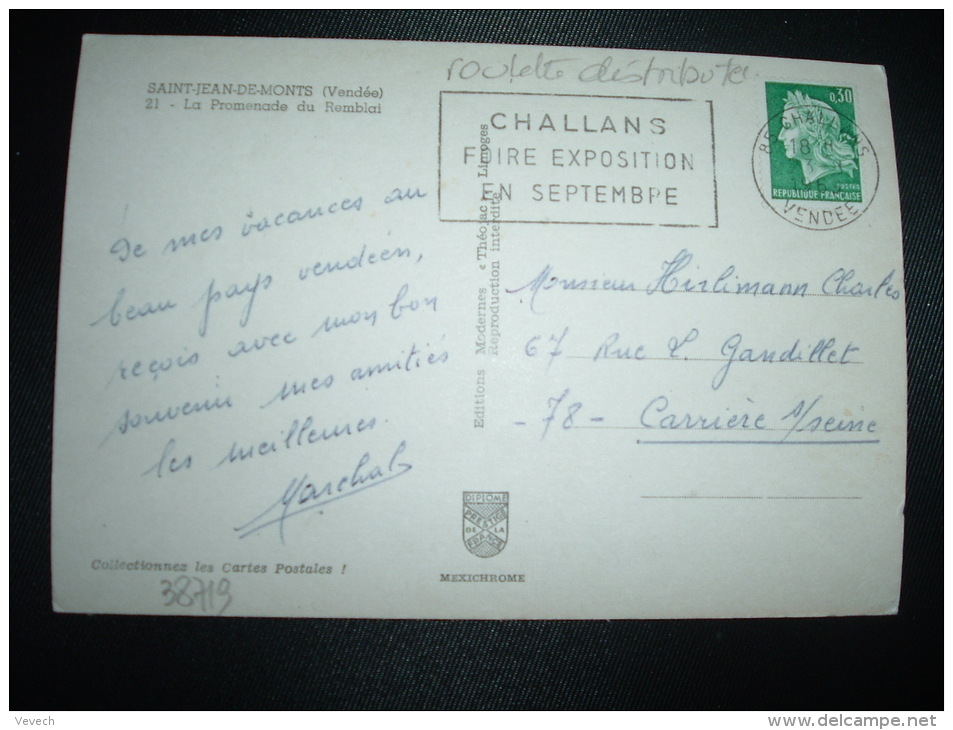 roulette distribute.
SAINT-JEAN-DE-MONTS (Vendée)
21 - La Promenade du Remblai
CHALLANS
FOIRE EXPOSITION
EN SEPTEMBRE
0,30
POSTES
REPUBLIQUE FRANÇAISE
85 CHALLANS
18 H
VENDEE
De mes vacances au
beau pays vendéen,
reçois avec mon bon
souvenir mes amitiés
les meilleures.
Marchal
Editions Modernes « Théojac » Limoges
Reproduction interdite
Monsieur Hirlimann Charles
67 Rue L. Gandillet
- 78 - Carrière s/seine
DIPLOME
PRESTIGE
DE LA
FRANCE
MEXICHROME
Collectionnez les Cartes Postales !
38719
Vevech
www.delcampe.net